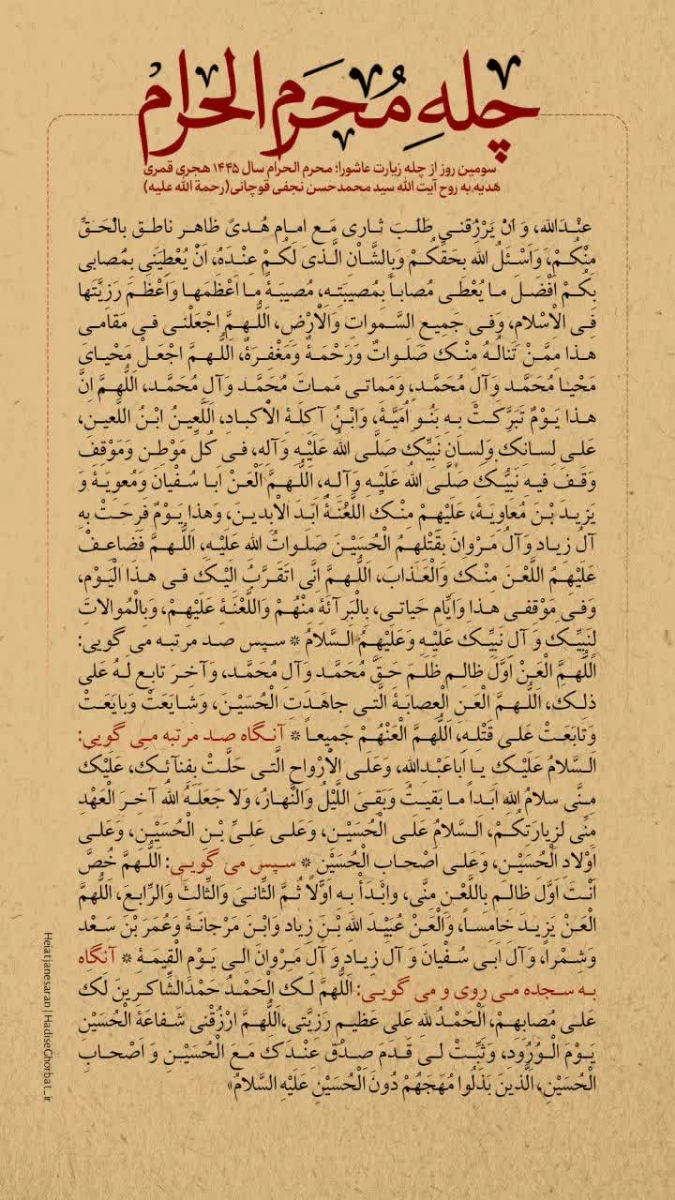 چله مُحَرم الحرام
سومین روز از چله زیارت عاشورا؛ محرم الحرام سال ۱۴۴۵ هجری قمری
هدیه به روح آیت الله سید محمدحسن نجفی قوچانی(رحمة الله علیه)
عِنْدَالله، وَ اَنْ یَرْزُقَنی طَلَبَ ثاری مَعَ اِمامِ هُدیً ظاهِرٍ ناطِقٍ بِالْحَقِّ
مِنْکُمْ، وَاَسْئَلُ الله بِحَقِّکُمْ وَبِالشَّاْنِ الَّذی لَکُمْ عِنْدَهُ، اَنْ یُعْطِیَنی بِمُصابی
بِکُمْ اَفْضَلَ ما یُعْطی مُصاباً بِمُصیبَتِهِ، مُصیبَةً ما اَعْظَمَها وَاَعْظَمَ رَزِیَّتَها
فِی الْاِسْلامِ، وَفی جَمیعِ السَّمواتِ وَالْاَرْضِ، اَللّهُمَّ اجْعَلْنی فی مَقامی
هذا مِمَّنْ تَنالُهُ مِنْکَ صَلَواتٌ وَرَحْمَةٌ وَمَغْفِرَةٌ، اَللّهُمَّ اجْعَلْ مَحْیایَ
مَحْیا مُحَمَّدٍ وَآلِ مُحَمَّدٍ، وَمَماتی مَماتَ مُحَمَّدٍ وَآلِ مُحَمَّدٍ، اَللّهُمَّ اِنَّ
هذا یَوْمٌ تَبَرَّکَتْ بِهِ بَنُو اُمَیَّةَ، وَابْنُ آکِلَةِ الْاَکبادِ، اللَّعینُ ابْنُ اللَّعینِ،
عَلی لِسانِکَ وَلِسانِ نَبِیِّکَ صَلَّی الله عَلَیْهِ وَآلِهِ، فی کُلِّ مَوْطِنٍ وَمَوْقِفٍ
وَقَفَ فیهِ نَبِیُّکَ صَلَّی الله عَلَیْهِ وَآلِهِ، اَللّهُمَّ الْعَنْ اَبا سُفْیانَ وَمُعوِیَةَ وَ
یَزیدَ بْنَ مُعاوِیَةَ، عَلَیْهِمْ مِنْکَ اللَّعْنَةُ اَبَدَ الْآبِدینَ، وَهذا یَوْمٌ فَرِحَتْ بِهِ
آلُ زِیادٍ وَآلُ مَرْوانَ بِقَتْلِهِمُ الْحُسَیْنَ صَلَواتُ الله عَلَیْهِ، اَللّهُمَّ فَضاعِفْ
عَلَیْهِمُ اللَّعْنَ مِنْکَ وَالْعَذابَ، اَللّهُمَّ اِنّی اَتَقَرَّبُ اِلَیْکَ فی هذَا الْیَوْمِ،
وَفی مَوْقِفی هذا وَاَیّامِ حَیاتی، بِالْبَرآئَةِ مِنْهُمْ وَاللَّعْنَةِ عَلَیْهِمْ، وَبِالْمُوالاتِ
لِنَبِیِّکَ وَ آلِ نَبِیِّکَ عَلَیْهِ وَعَلَیْهِمُ السَّلامُ * سپس صد مرتبه می گویی:
اَللّهُمَّ الْعَنْ اَوَّلَ ظالِمٍ ظَلَمَ حَقَّ مُحَمَّدٍ وَآلِ مُحَمَّدٍ، وَآخِرَ تابِعٍ لَهُ عَلی
ذلِکَ، اَللّهُمَّ الْعَنِ الْعِصابَةَ الَّتی جاهَدَتِ الْحُسَیْنَ، وَشایَعَتْ وَبایَعَتْ
وَتابَعَتْ عَلی قَتْلِهِ، اَللّهُمَّ الْعَنْهُمْ جَمیعاً * آنگاه صد مرتبه می گویی:
اَلسَّلامُ عَلَیْکَ یا اَباعَبْدِالله، وَعَلَی الْاَرْواحِ الَّتی حَلَّتْ بِفِنآئِکَ، عَلَیْکَ
مِنّی سَلامُ اللهِ اَبَداً ما بَقیتُ وَبَقِیَ اللَّیْلُ وَالنَّهارُ، وَلا جَعَلَهُ الله آخِرَ الْعَهْدِ
مِنّی لِزِیارَتِکُمْ، اَلسَّلامُ عَلَی الْحُسَیْنِ، وَعَلی عَلِیِّ بْنِ الْحُسَیْنِ، وَعَلی
اَوْلادِ الْحُسَیْنِ، وَعَلی اَصْحابِ الْحُسَیْنِ * سپس می گویی: اَللّهُمَّ خُصَّ
اَنْتَ اَوَّلَ ظالِمٍ بِاللَّعْنِ مِنّی، وَابْدَأْ بِهِ اَوَّلاً ثُمَّ الثّانِیَ وَالثّالِثَ وَالرّابِعَ، اَللّهُمَّ
الْعَنْ یَزیدَ خامِساً، وَالْعَنْ عُبَیْدَ اللهِ بْنَ زِیادٍ وَابْنَ مَرْجانَةَ وَعُمَرَ بْنَ سَعْدٍ
وَشِمْراً، وَآلَ اَبی سُفْیانَ وَ آلَ زِیادٍ وَ آلَ مَرْوانَ اِلی یَوْمِ الْقِیمَةِ * آنگاه
به سجده می روی و می گویی: اَللّهُمَّ لَکَ الْحَمْدُ حَمْدَالشّاکِرینَ لَکَ
عَلی مُصابِهِمْ، اَلْحَمْدُ لِلّهِ عَلی عَظیمِ رَزِیَّتی،اَللّهُمَّ ارْزُقْنی شَفاعَةَ الْحُسَیْنِ
یَوْمَ الْوُرُودِ، وَثَبِّتْ لی قَدَمَ صِدْقٍ عِنْدَکَ مَعَ الْحُسَیْنِ وَ اَصْحابِ
الْحُسَیْنِ، الَّذینَ بَذَلُوا مُهَجَهُمْ دُونَ الْحُسَیْنِ عَلَیْهِ السَّلامُ»
Heiatjanesaran | HadiseGhorbat_ir